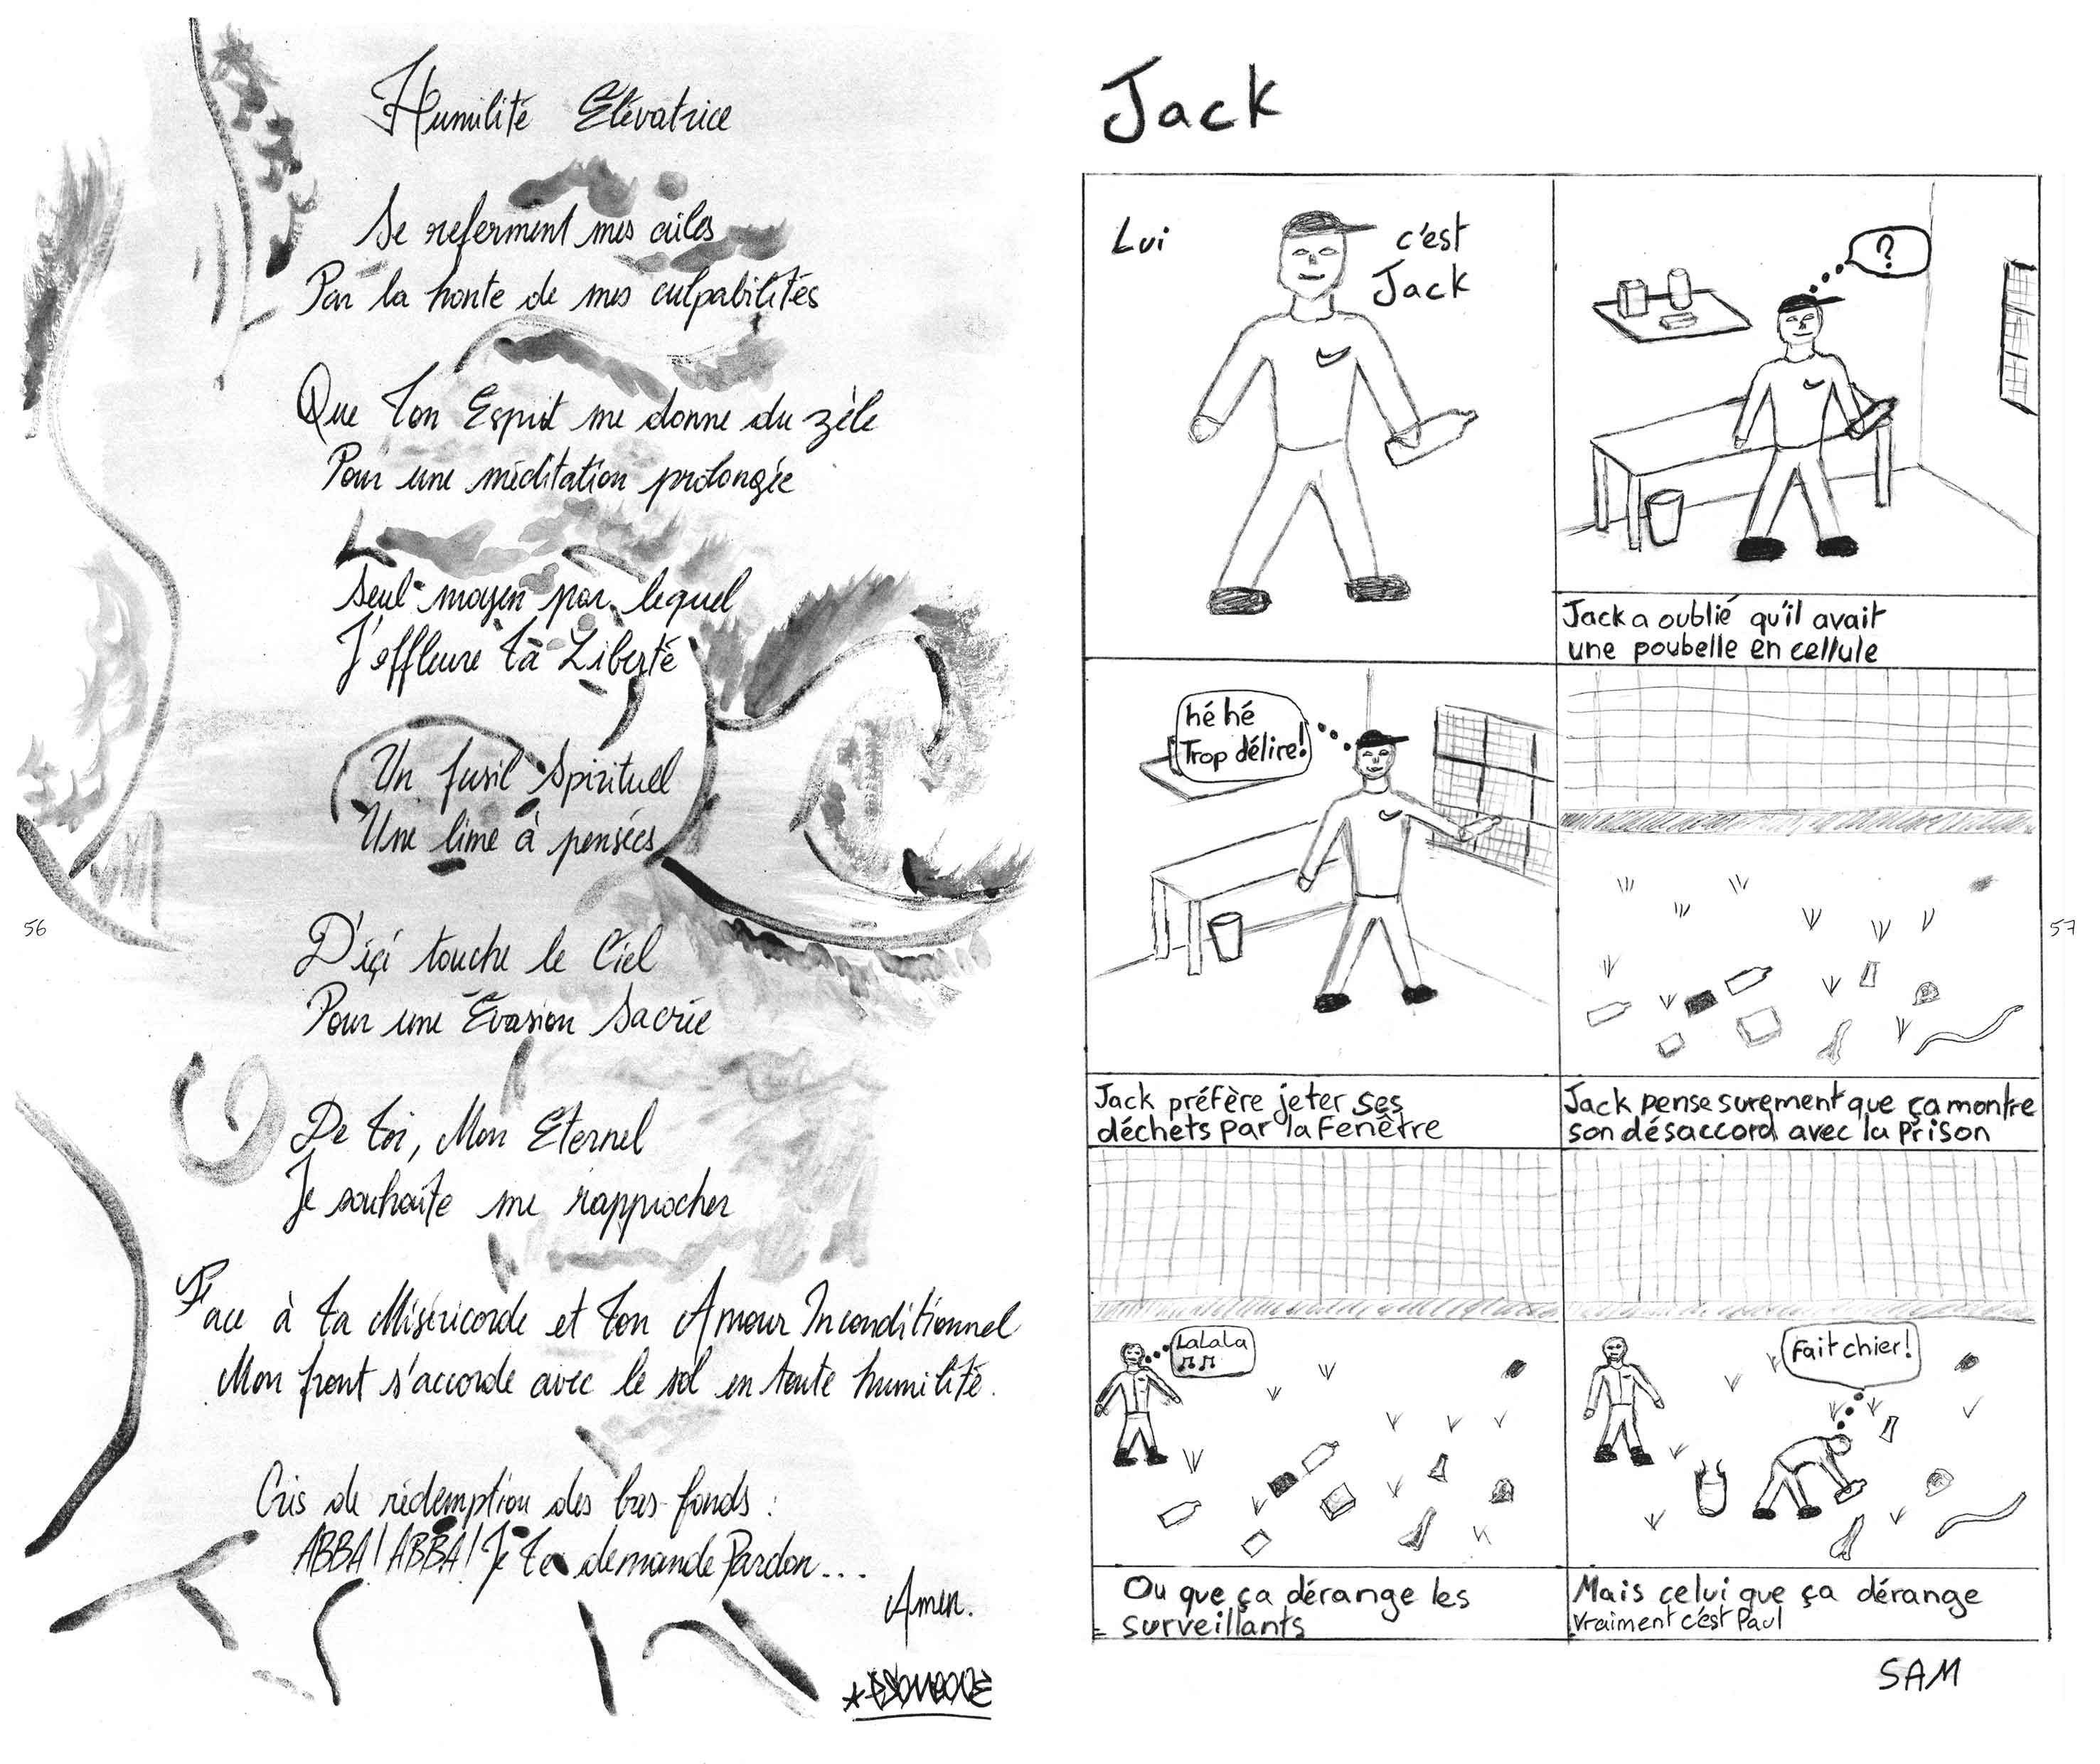 Humilité Elévatrice
Se referment mes ailes
Par la honte de mes culpabilités
Que ton Esprit me donne du zèle
Pour une méditation prolongée
Seul moyen par lequel
J'effleure ta Liberté
Un fusil spirituel
Une lime à pensées
D'içi touche le Ciel
Pour une Évasion Sacrée
De toi, Mon Eternel
Je souhaite me rapprocher
Face à ta Miséricorde et ton Amour Inconditionnel
Mon front s'accorde avec le sol en toute humilité.
Cris de rédemption des bas-fonds :
ABBA! ABBA! Je te demande Pardon...
Amen.
56
Jack
Lui
c'est
Jack
?
Jack a oublié qu'il avait
une poubelle en cellule
hé hé
Trop délire!
Jack préfère jeter ses
déchets par la fenêtre
Jack pense surement que ça montre
son désaccord avec la Prison
LaLaLa
Ou que ça dérange les
surveillants
Fait chier!
Mais celui que ça dérange
vraiment c'est Paul
SAM
57